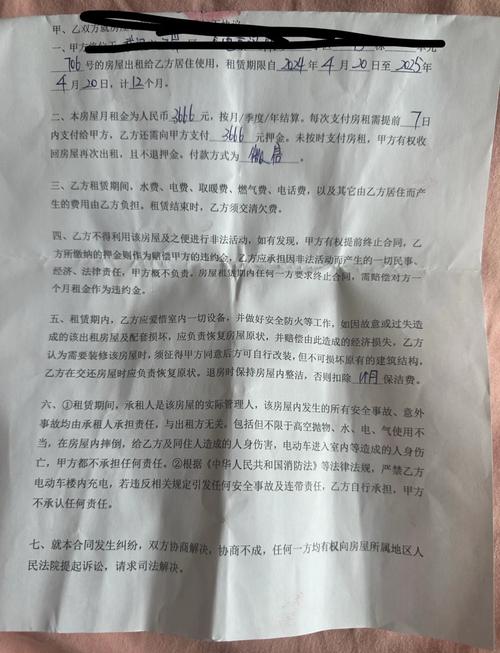 甲、乙双方就房屋
一、甲方将位于
706 号的房屋出租给乙方居住使用，租赁期限自 2024 年 4 月 20 日至 2025 年
4 月 20 日，计 12 个月。
二、本房屋月租金为人民币 3666 元，按月/季度/年结算。每次支付房租需提前 7 日
内支付给甲方，乙方还需向甲方支付 3666 元押金。未按时支付房租，甲方有权收
回房屋再次出租，且不退押金。付款方式为 微信 。
三、乙方租赁期间，水费、电费、取暖费、燃气费、电话费，以及其它由乙方居住而产
生的费用由乙方负担。租赁结束时，乙方须交清欠费。
四、乙方不得利用该房屋及之便进行非法活动，如有发现，甲方有权提前终止合同，乙
方所缴纳的押金则作为赔偿甲方的违约金，乙方应承担因非法活动而产生的一切民事、
经济、法律责任，甲方概不负责。房屋租赁期内任何一方要求终止合同，需赔偿对方一
个月租金作为违约金。
五、租赁期内，乙方应爱惜室内一切设备，并做好安全防火等工作，如因故意或过失造
成的该出租房屋及配套损坏，应负责恢复房屋原状，并赔偿由此造成的经济损失，乙方
认为需要装修该房屋时，须征得甲方同意后方可自行改装，但不可损坏原有的建筑结构，
乙方在交还房屋时应负责恢复原状。退房时保持房屋内整洁，否则扣除 月 保洁费。
六、①租赁期间，承租人是该房屋的实际管理人，该房屋内发生的所有安全事故、意外
事故均由承租人承担责任，与出租方无关。包括但不限于高空抛物、水、电、气使用不
当，在房屋内摔倒，给乙方及同住人造成的人身伤害，电动车进入室内等造成的人身伤
亡，甲方都不承担任何责任。②根据《中华人民共和国消防法》等法律法规，严禁乙方
电动车楼内充电，若违反相关规定引发任何安全事故及连带责任，乙方自行承担，甲方
不承认任何责任。
七、就本合同发生纠纷，双方协商解决，协商不成，任何一方均有权向房屋所属地区人
民法院提起诉讼，请求司法解决。